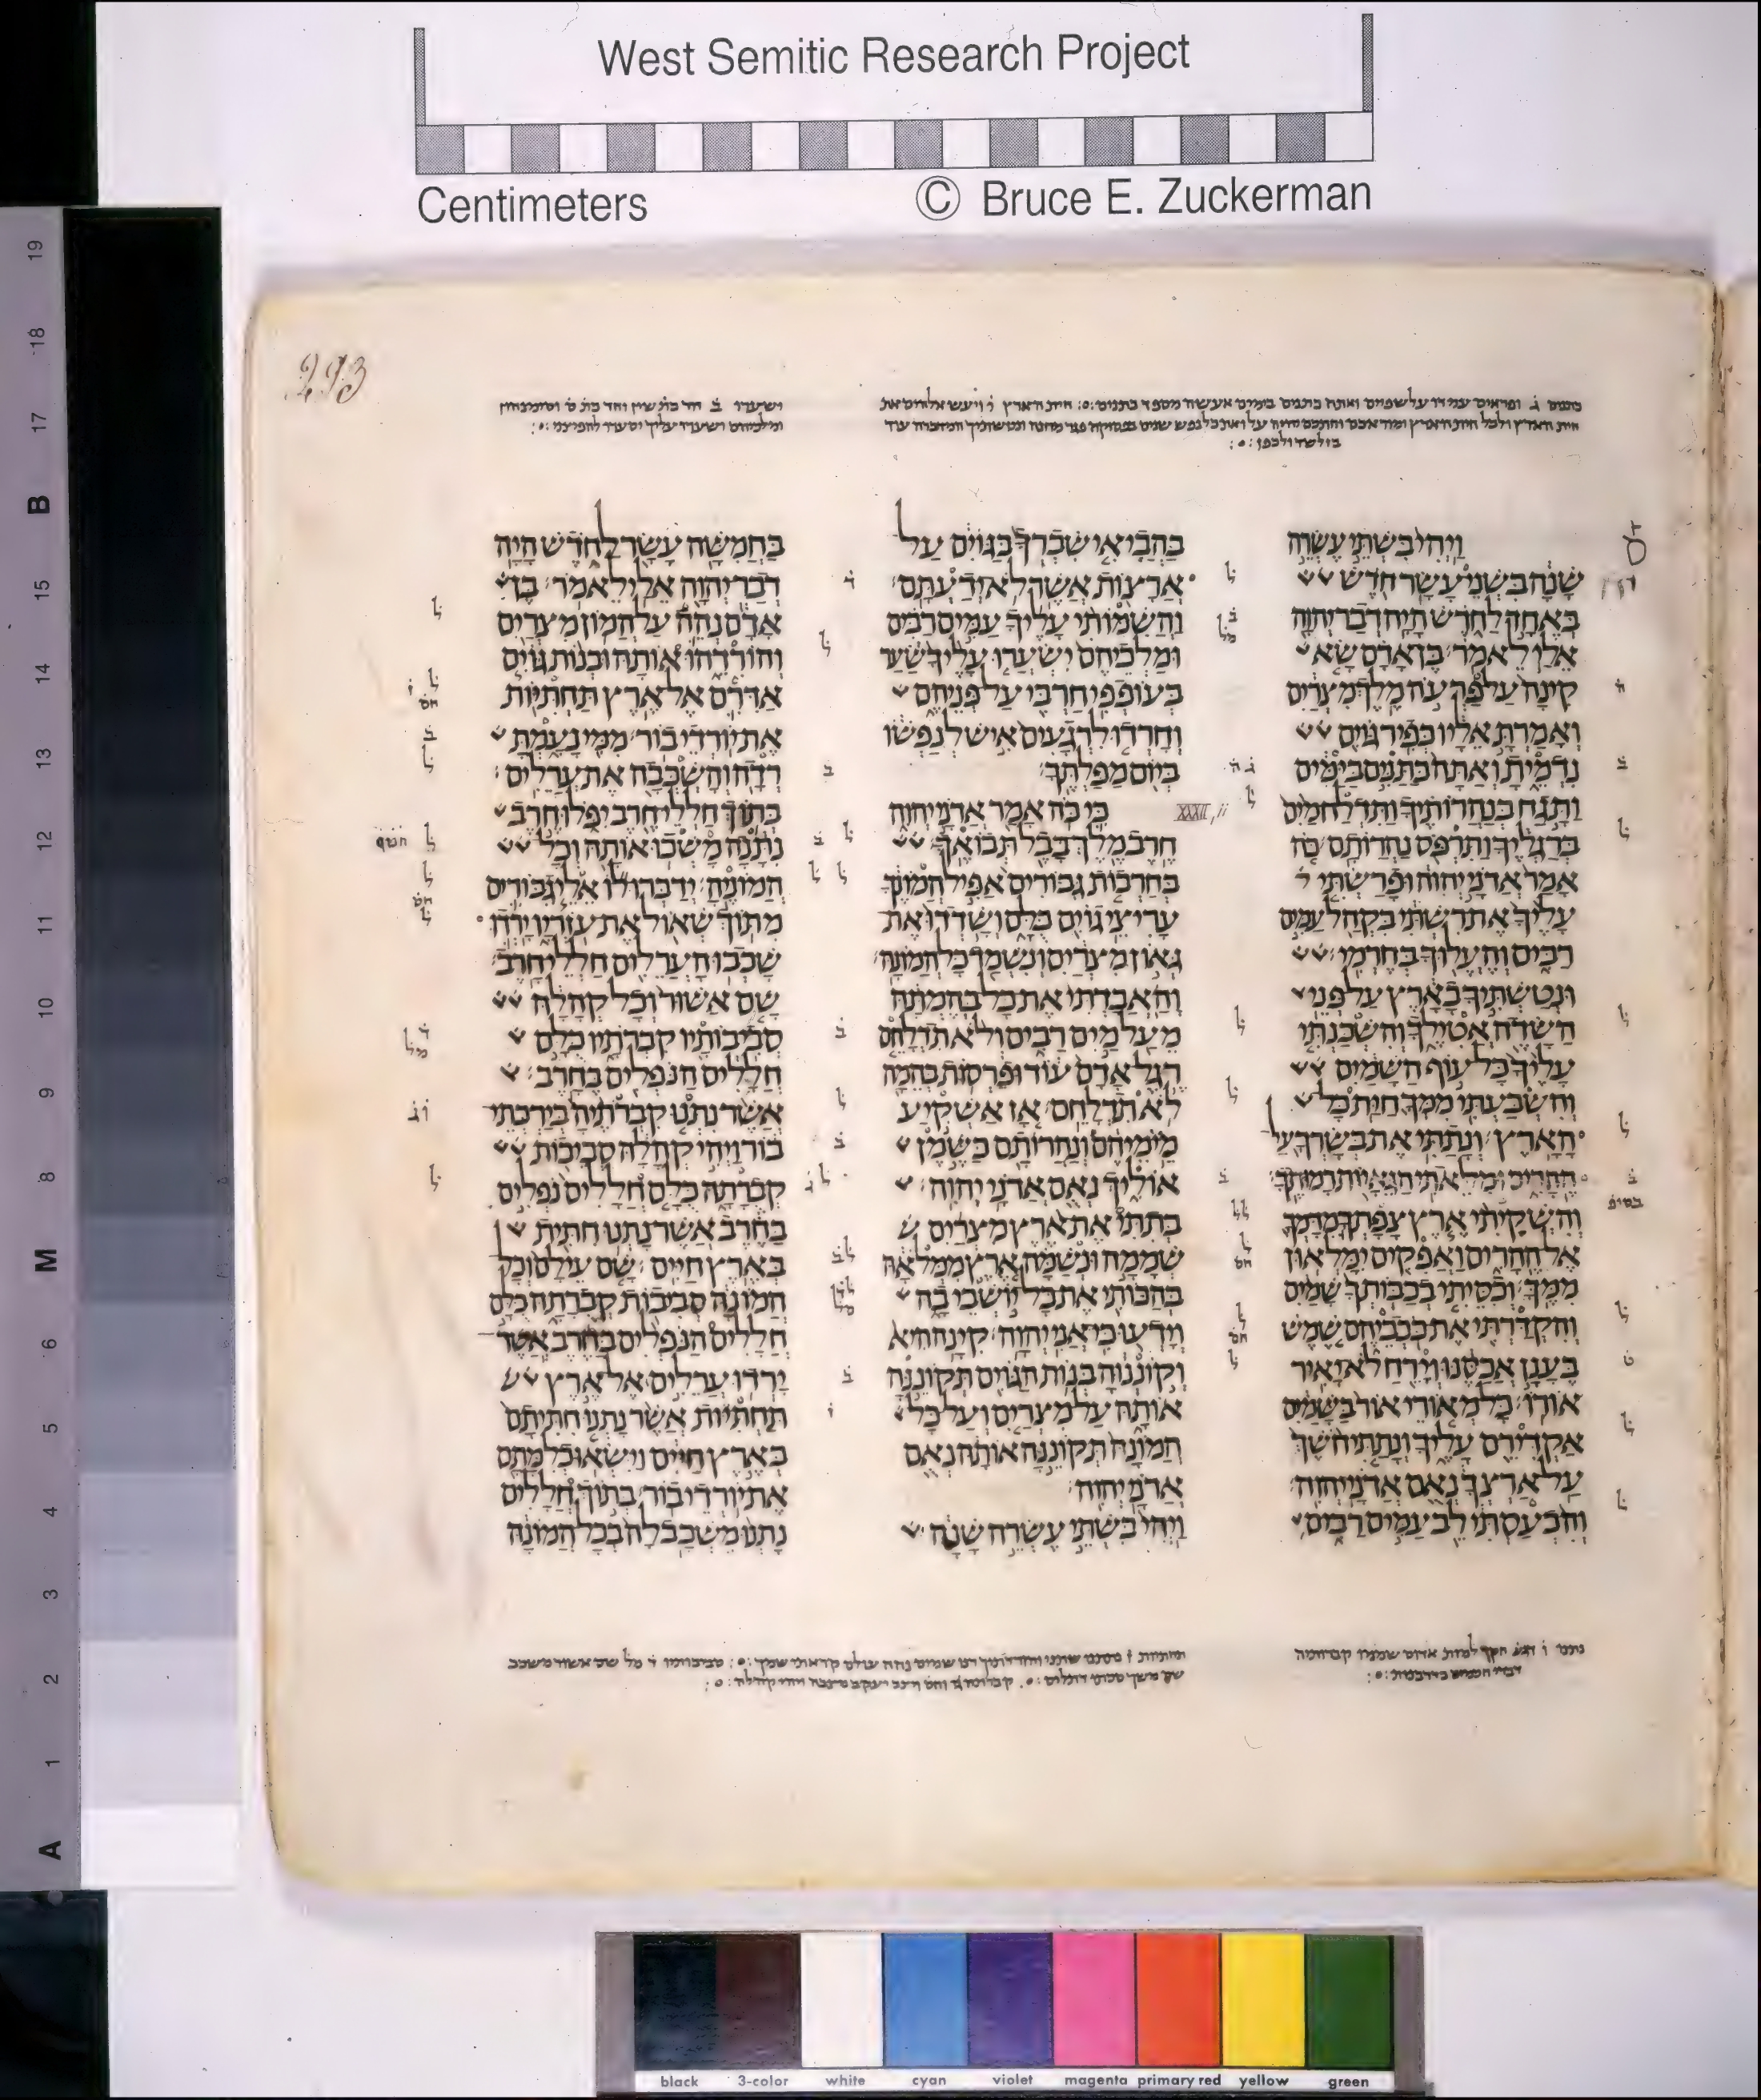 West Semitic Research Project
Centimeters © Bruce E. Zuckerman
293
וַיְהִי בִּשְׁתֵּי עֶשְׂרֵה
שָׁנָה בִּשְׁנֵי עָשָׂר חֹדֶשׁ
בְּאֶחָד לַחֹדֶשׁ הָיָה דְבַר יְהוָה
אֵלַי לֵאמֹר׃ בֶּן אָדָם שָׂא
קִינָה עַל פַּרְעֹה מֶלֶךְ מִצְרַיִם
וְאָמַרְתָּ אֵלָיו כְּפִיר גּוֹיִם
נִדְמֵיתָ וְאַתָּה כַּתַּנִּים בַּיַּמִּים
וַתָּגַח בְּנַהֲרוֹתֶיךָ וַתִּדְלַח מַיִם
בְּרַגְלֶיךָ וַתִּרְפֹּס נַהֲרוֹתָם׃ כֹּה
אָמַר אֲדֹנָי יְהוִה וּפָרַשְׂתִּי
עָלֶיךָ אֶת רִשְׁתִּי בִּקְהַל עַמִּים
רַבִּים וְהֶעֱלוּךָ בְּחֶרְמִי׃
וּנְטַשְׁתִּיךָ בָאָרֶץ עַל פְּנֵי
הַשָּׂדֶה אֲטִילֶךָ וְהִשְׁכַּנְתִּי
עָלֶיךָ כָּל עוֹף הַשָּׁמַיִם
וְהִשְׂבַּעְתִּי מִמְּךָ חַיַּת כָּל
הָאָרֶץ׃ וְנָתַתִּי אֶת בְּשָׂרְךָ עַל
הֶהָרִים וּמִלֵּאתִי הַגֵּאָיוֹת רָמוּתֶךָ׃
וְהִשְׁקֵיתִי אֶרֶץ צָפָתְךָ מִדָּמְךָ
אֶל הֶהָרִים וַאֲפִקִים יִמָּלְאוּן
מִמֶּךָּ׃ וְכִסֵּיתִי בְכַבּוֹתְךָ שָׁמַיִם
וְהִקְדַּרְתִּי אֶת כֹּכְבֵיהֶם שֶׁמֶשׁ
בֶּעָנָן אֲכַסֶּנּוּ וְיָרֵחַ לֹא יָאִיר
אוֹרוֹ׃ כָּל מְאוֹרֵי אוֹר בַּשָּׁמַיִם
אַקְדִּירֵם עָלֶיךָ וְנָתַתִּי חֹשֶׁךְ
עַל אַרְצְךָ נְאֻם אֲדֹנָי יְהוִה׃
וְהִכְעַסְתִּי לֵב עַמִּים רַבִּים
בַּהֲבִיאִי שִׁבְרְךָ בַּגּוֹיִם עַל
אֲרָצוֹת אֲשֶׁר לֹא יְדַעְתָּם׃
וַהֲשִׁמּוֹתִי עָלֶיךָ עַמִּים רַבִּים
וּמַלְכֵיהֶם יִשְׂעֲרוּ עָלֶיךָ שַׂעַר
בְּעוֹפְפִי חַרְבִּי עַל פְּנֵיהֶם
וְחָרְדוּ לִרְגָעִים אִישׁ לְנַפְשׁוֹ
בְּיוֹם מַפַּלְתֶּךָ׃
XXXII, ii
כִּי כֹּה אָמַר אֲדֹנָי יְהוִה
חֶרֶב מֶלֶךְ בָּבֶל תְּבוֹאֶךָ׃
בְּחַרְבוֹת גִּבּוֹרִים אַפִּיל הֲמוֹנֶךָ
עָרִיצֵי גוֹיִם כֻּלָּם וְשָׁדְדוּ אֶת
גְּאוֹן מִצְרַיִם וְנִשְׁמַד כָּל הֲמוֹנָהּ׃
וְהַאֲבַדְתִּי אֶת כָּל בְּהֶמְתָּהּ
מֵעַל מַיִם רַבִּים וְלֹא תִדְלָחֵם
רֶגֶל אָדָם עוֹד וּפַרְסוֹת בְּהֵמָה
לֹא תִדְלָחֵם׃ אָז אַשְׁקִיעַ
מֵימֵיהֶם וְנַהֲרוֹתָם כַּשֶּׁמֶן
אוֹלִיךְ נְאֻם אֲדֹנָי יְהוִה׃
בְּתִתִּי אֶת אֶרֶץ מִצְרַיִם
שְׁמָמָה וּנְשַׁמָּה אֶרֶץ מִמְּלֹאָהּ
בְּהַכּוֹתִי אֶת כָּל יוֹשְׁבֵי בָהּ
וְיָדְעוּ כִּי אֲנִי יְהוָה׃ קִינָה הִיא
וְקוֹנְנוּהָ בְּנוֹת הַגּוֹיִם תְּקוֹנֵנָּה
אוֹתָהּ עַל מִצְרַיִם וְעַל כָּל
הֲמוֹנָהּ תְּקוֹנֵנָּה אוֹתָהּ נְאֻם
אֲדֹנָי יְהוִה׃
וַיְהִי בִּשְׁתֵּי עֶשְׂרֵה שָׁנָה
בַּחֲמִשָּׁה עָשָׂר לַחֹדֶשׁ הָיָה
דְבַר יְהוָה אֵלַי לֵאמֹר׃ בֶּן
אָדָם נְהֵה עַל הֲמוֹן מִצְרַיִם
וְהוֹרִדֵהוּ אוֹתָהּ וּבְנוֹת גּוֹיִם
אַדִּרִם אֶל אֶרֶץ תַּחְתִּיּוֹת
אֶת יוֹרְדֵי בוֹר׃ מִמִּי נָעָמְתָּ
רְדָה וְהָשְׁכְּבָה אֶת עֲרֵלִים׃
בְּתוֹךְ חַלְלֵי חֶרֶב יִפֹּלוּ חֶרֶב
נִתָּנָה מָשְׁכוּ אוֹתָהּ וְכָל
הֲמוֹנֶיהָ׃ יְדַבְּרוּ לוֹ אֵלֵי גִבּוֹרִים
מִתּוֹךְ שְׁאוֹל אֶת עֹזְרָיו יָרְדוּ
שָׁכְבוּ הָעֲרֵלִים חַלְלֵי חָרֶב׃
שָׁם אַשּׁוּר וְכָל קְהָלָהּ
סְבִיבוֹתָיו קִבְרֹתָיו כֻּלָּם
חֲלָלִים הַנֹּפְלִים בֶּחָרֶב׃
אֲשֶׁר נִתְּנוּ קִבְרֹתֶיהָ בְּיַרְכְּתֵי
בוֹר וַיְהִי קְהָלָהּ סְבִיבוֹת
קְבֻרָתָהּ כֻּלָּם חֲלָלִים נֹפְלִים
בַּחֶרֶב אֲשֶׁר נָתְנוּ חִתִּית
בְּאֶרֶץ חַיִּים׃ שָׁם עֵילָם וְכָל
הֲמוֹנָהּ סְבִיבוֹת קְבֻרָתָהּ כֻּלָּם
חֲלָלִים הַנֹּפְלִים בַּחֶרֶב אֲשֶׁר
יָרְדוּ עֲרֵלִים אֶל אֶרֶץ
תַּחְתִּיּוֹת אֲשֶׁר נָתְנוּ חִתִּיתָם
בְּאֶרֶץ חַיִּים וַיִּשְׂאוּ כְלִמָּתָם
אֶת יוֹרְדֵי בוֹר׃ בְּתוֹךְ חֲלָלִים
נָתְנוּ מִשְׁכָּב לָהּ בְּכָל הֲמוֹנָהּ
19
18
17
B
15
14
13
12
11
10
9
8
M
6
5
4
3
2
1
A
black 3-color white cyan violet magenta primary red yellow green